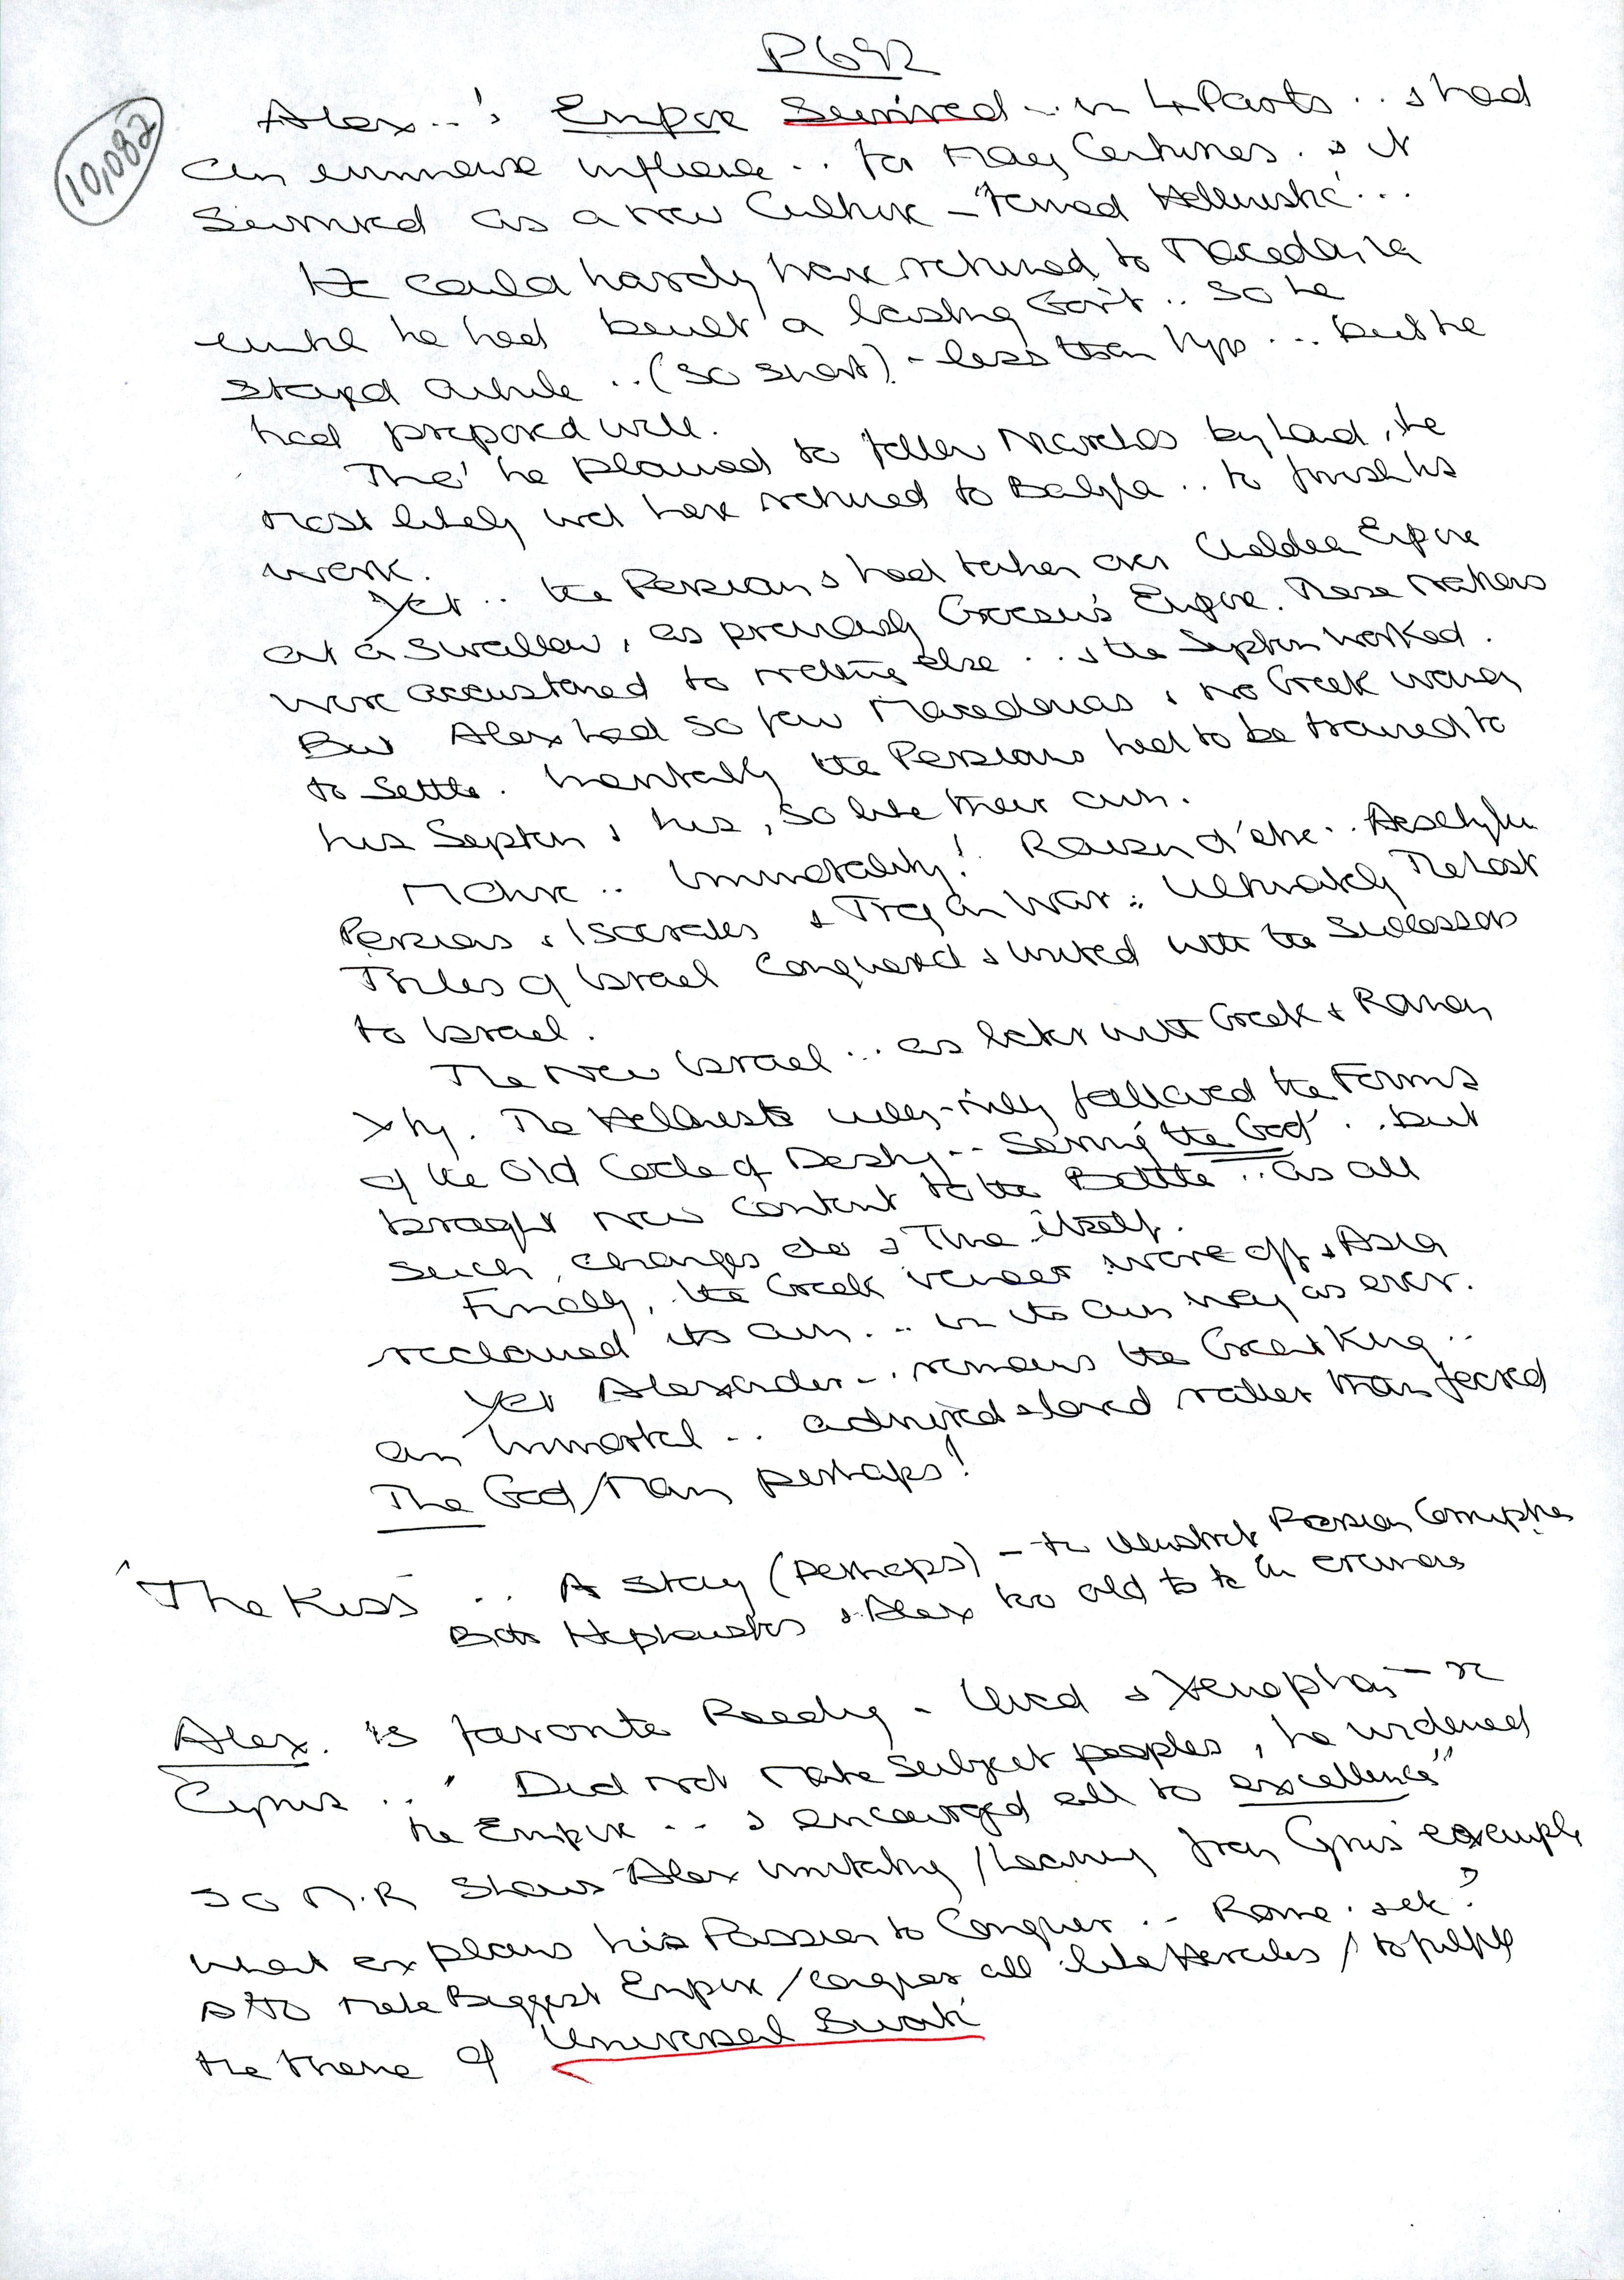 P692
10,082
Alex..'s Empire Survived .. in 4 Parts .. & had
an immense influence .. for Many Centuries . & it
Survived as a new Culture – 'termed Hellenistic'...
He could hardly have returned to Macedonia
until he had built a lasting Gov't .. so he
stayed awhile .. (so short) – less than 1 yr ... but he
had prepared well.
Tho' he planned to follow Nearchos by land, he
most likely wd have returned to Babyla .. to finish his
work.
Yet .. the Persians had taken over Chaldean Empire
at a swallow, as previously Croesus's Empire. These Nations
were accustomed to nothing else .. & the System worked.
But Alex had so few Macedonians & no Greek women
to settle. Inevitably the Persians had to be trained to
his System & his, so like their own.
Motive .. Immortality! Raison d'etre .. Aeschylus
Persians & Isocrates & Trojan War : Ultimately The Lost
Tribes of Israel conquered & united with the Successors
to Israel.
The New Israel ... as later with Greek & Roman
Xty. The Hellenists followed the Forms
of the Old Code of Destiny .. Serving 'the God' .. but
brought new content to the Bottle .. as all
such changes do & Time itself.
Finally, the Greek veneer wore off & Asia
reclaimed its own ... in its own way as ever.
Yet Alexander .. remains the Great King ..
an Immortal .. admired & loved rather than feared
The God/Man perhaps!
'The Kiss' .. A Story (Perhaps) – to illustrate Persian Corruption
Both Hephaistos & Alex too old to be in
Alex. 's favorite Reading – Iliad & Xenophon – re
Cyrus .. " Did not make subject peoples, he widened
the Empire .. & encouraged all to excellence"
so M.R shows Alex imitating / learning from Cyrus' example
what explains his Passion to Conquer .. Rome . set?
make Biggest Empire / conquer all like Hercules / to fulfil
the theme of 'Universal